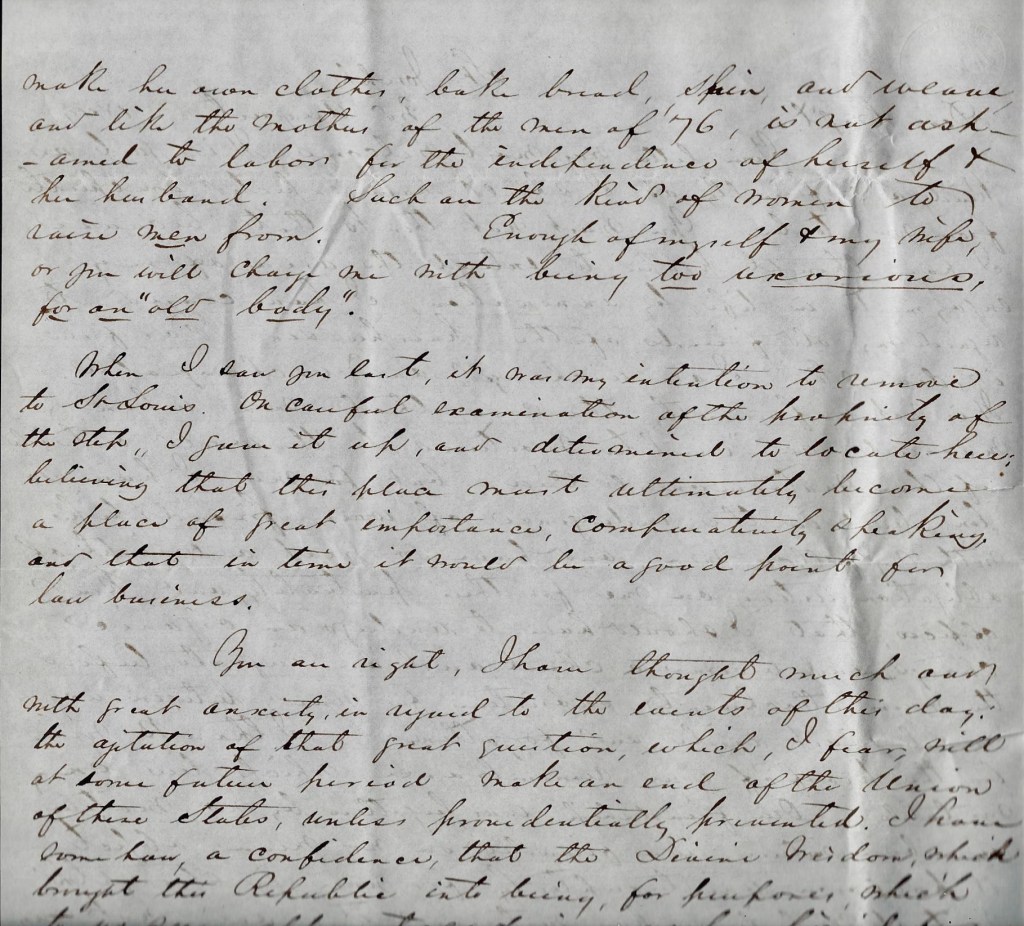 make her own clothes, bake bread, spin, and weave,
and like the mothers of the men of '76, is not ash-
-amed to labor for the independence of herself &
her husband. Such are the kind of women to
raise men from. Enough of myself & my wife,
or you will charge me with being too uxorious,
for an "old body".
When I saw you last, it was my intention to remove
to St Louis. On careful examination of the propriety of
the step, I gave it up, and determined to locate here:
believing that this place must ultimately become
a place of great importance, comparatively speaking,
and that in time it would be a good point for
law business.
You are right, I have thought much and
with great anxiety, in regard to the events of this day:
the agitation of that great question, which, I fear, will
at some future period make an end of the Union
of these States, unless providentially prevented. I have
some how, a confidence, that the Divine Wisdom, which
brought this Republic into being, for purposes, which